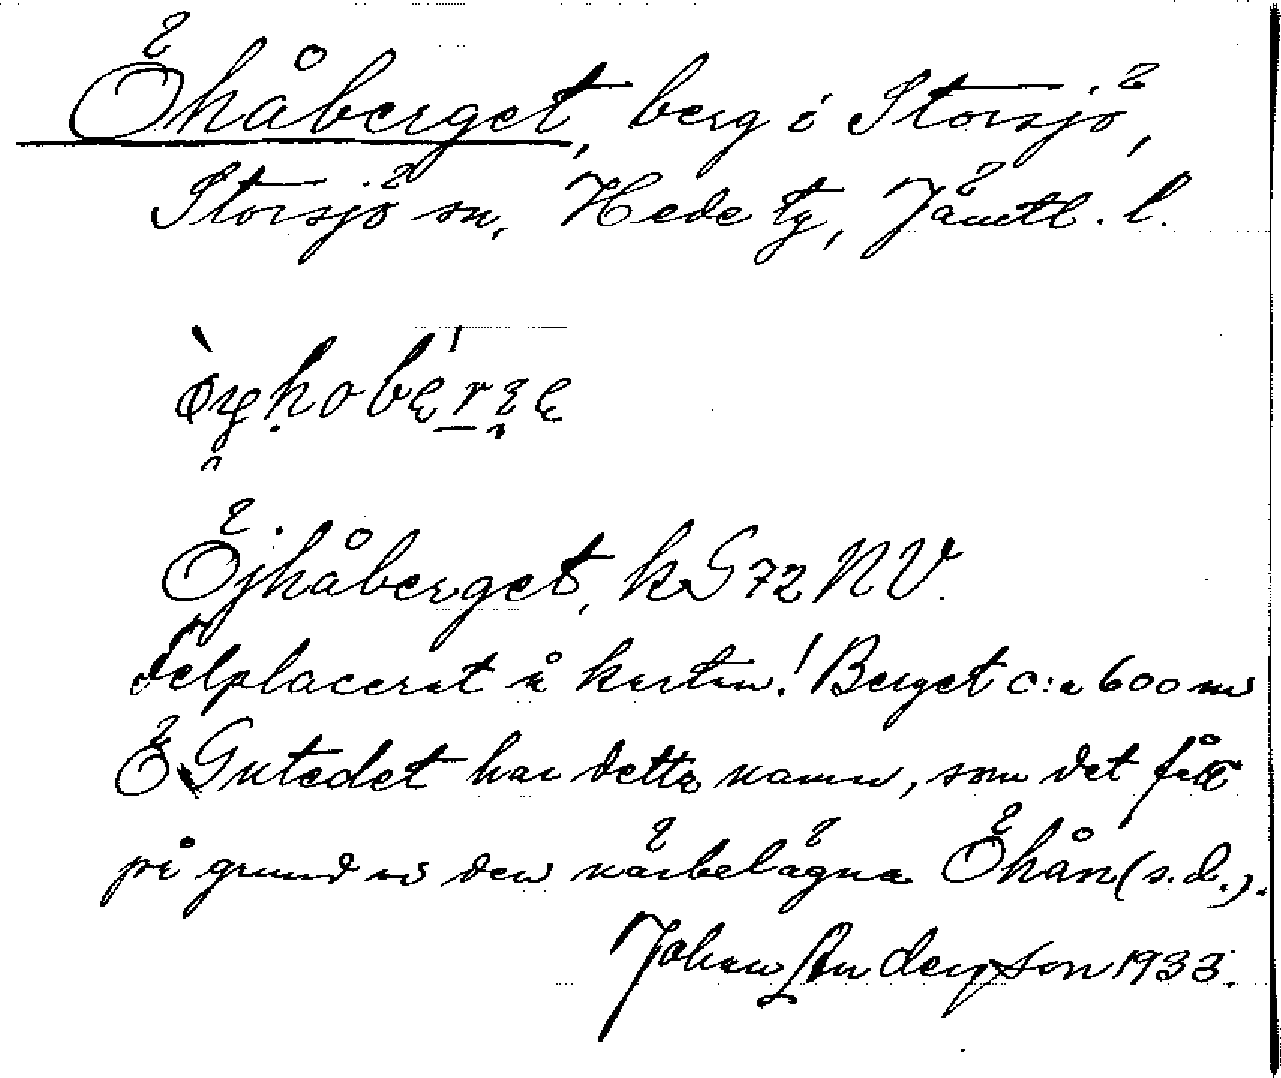 Öhåberget, berg i Storsjö,
Storsjö sn, Hede tg, Jämtl. l.
Öjhåberget, kS 72 NV.
Felplacerat å kartan! Berget c:a 600 m
Ö Gutedet har detta namn, som det fått
på grund av den närbelägna Öhån (s.d.).
Johan Anderson 1933.